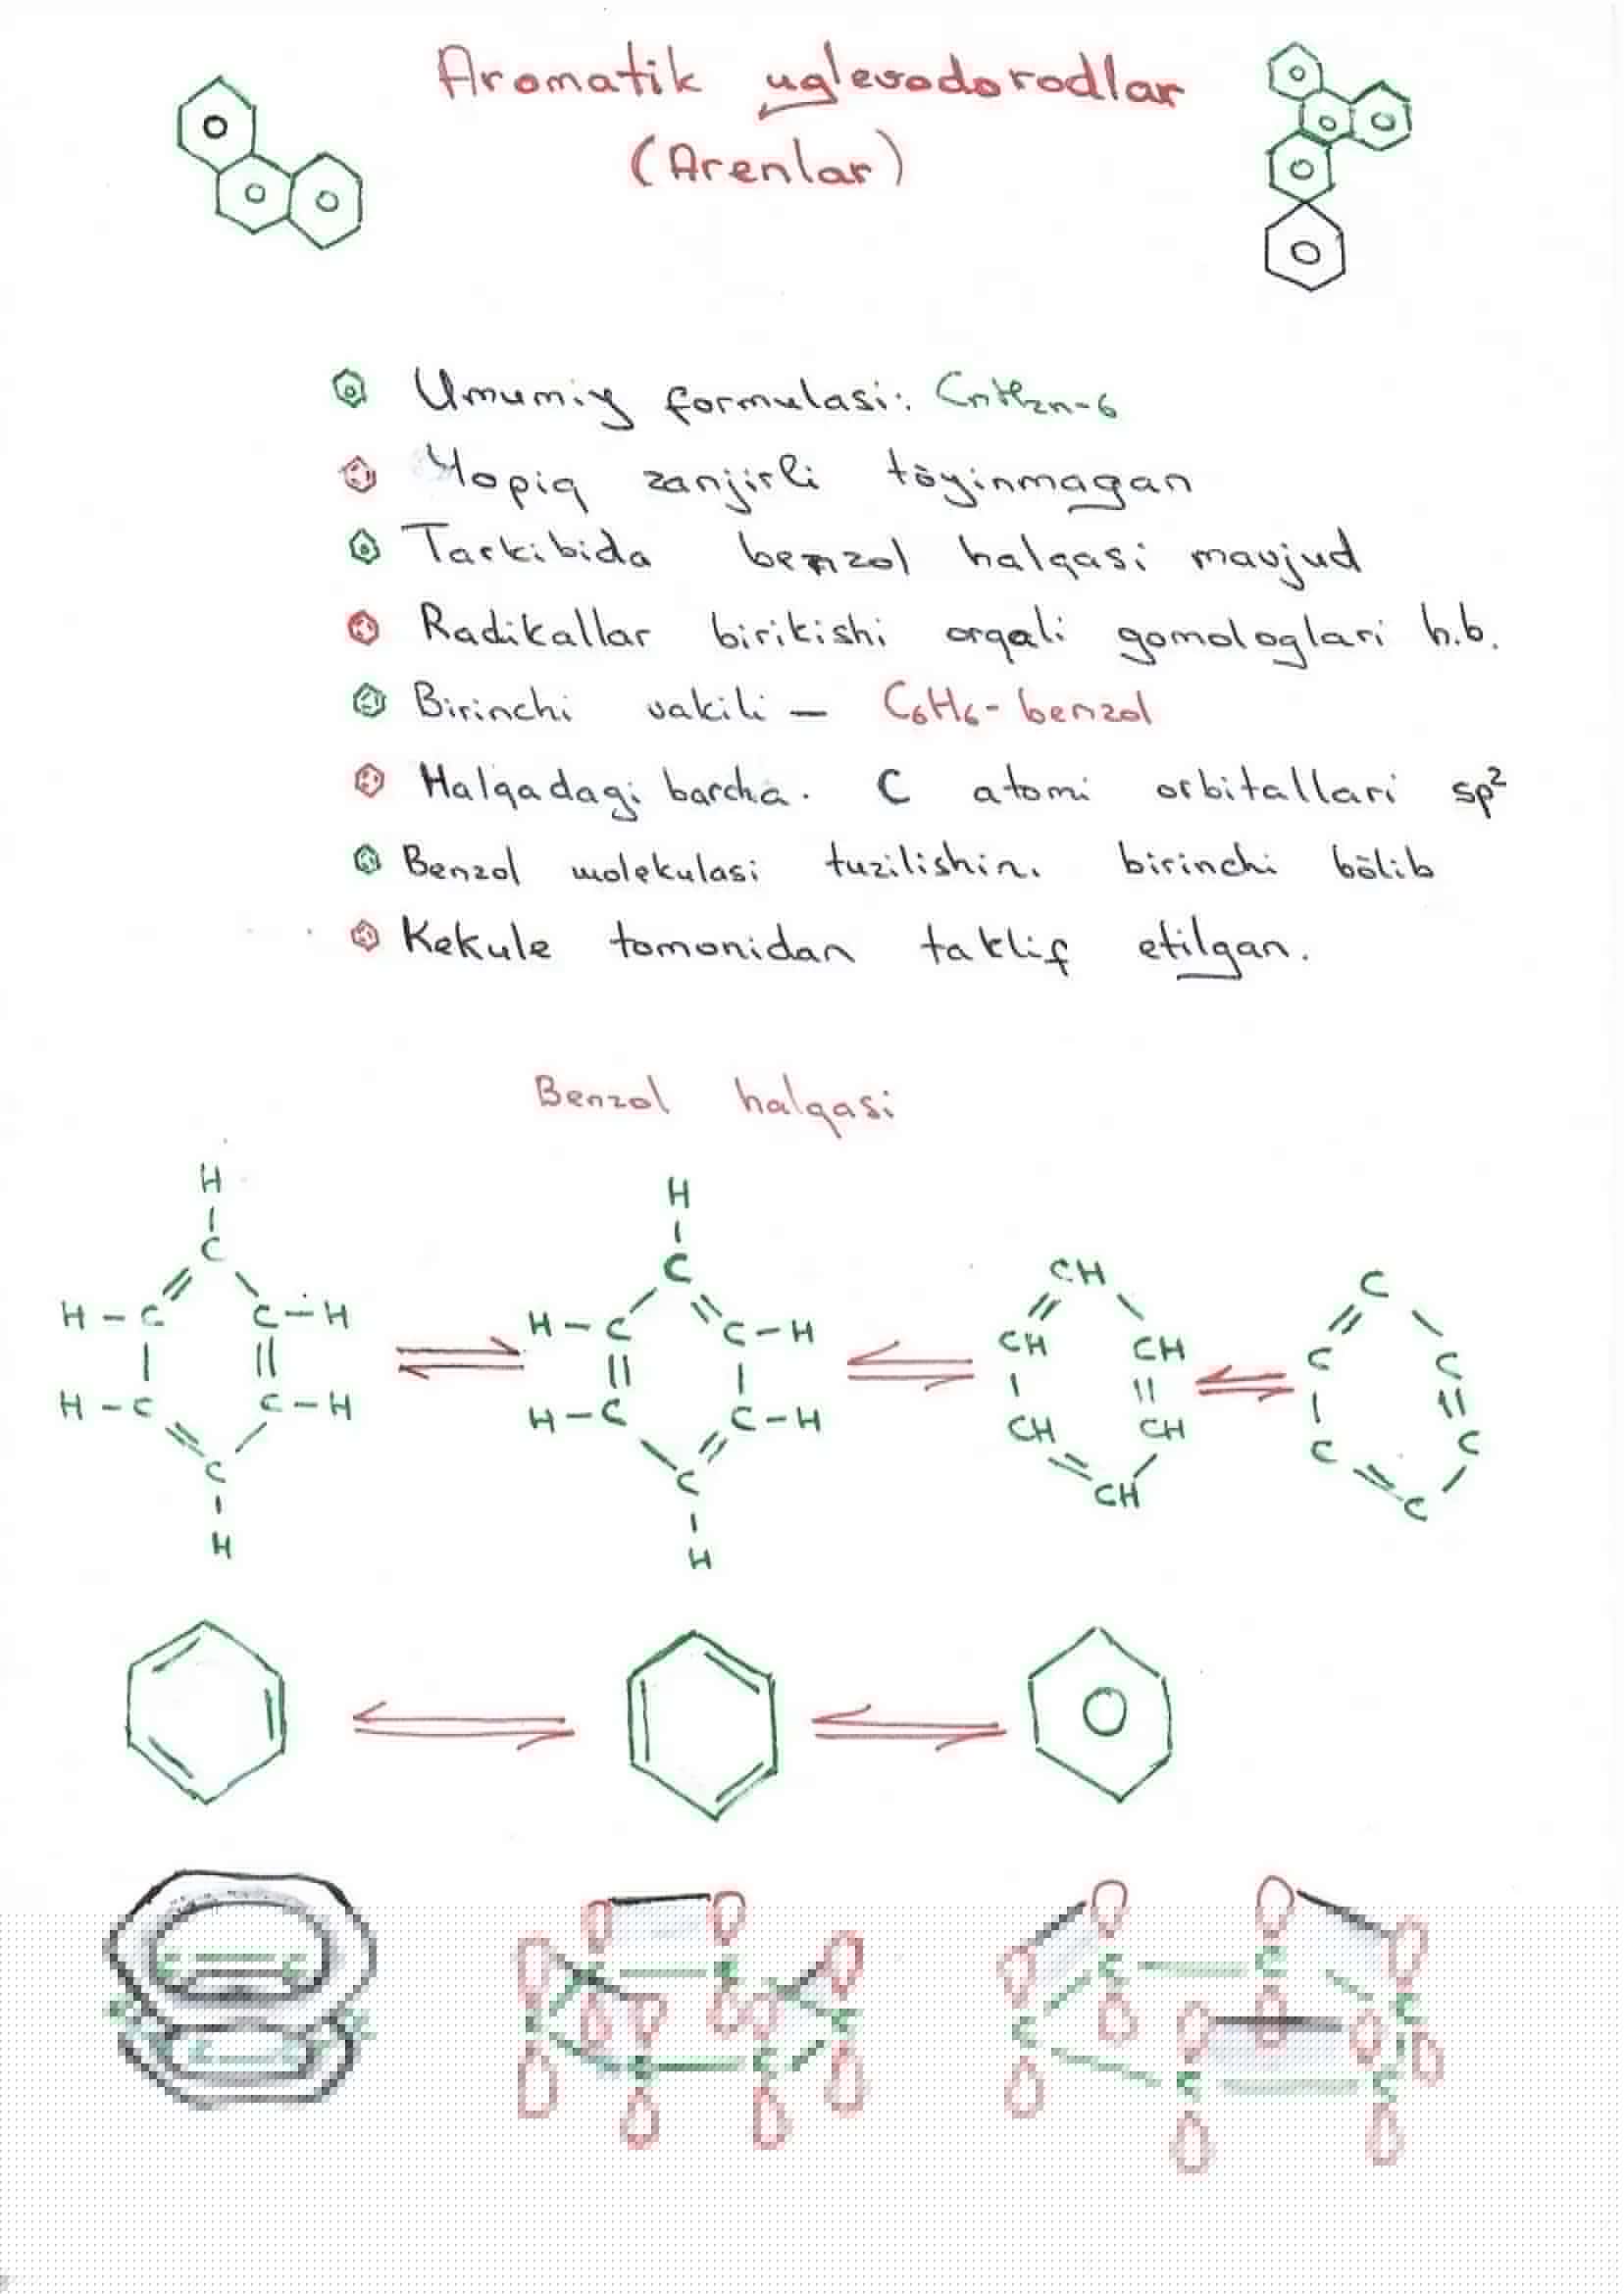 Aromatik uglevodorodlar
(Arenlar)
Umumiy formulasi: CnH2n-6
Yopiq zanjirli töyinmagan
Tarkibida benzol halqasi mavjud
Radikallar birikishi orqali gomologlari h.b.
Birinchi vakili - C6H6- benzol
Halqadagi barcha. C atomi orbitallari sp²
Benzol molekulasi tuzilishini birinchi bölib
Kekule tomonidan taklif etilgan.
Benzol halqasi
H
H
C
C
H-C C-H
H-C C-H
CH
C
CH CH
C C
H-C C-H
H-C C-H
CH CH
C C
C
C
CH
C
H
H
C C
C C
C C
C C
C C
C C
C C